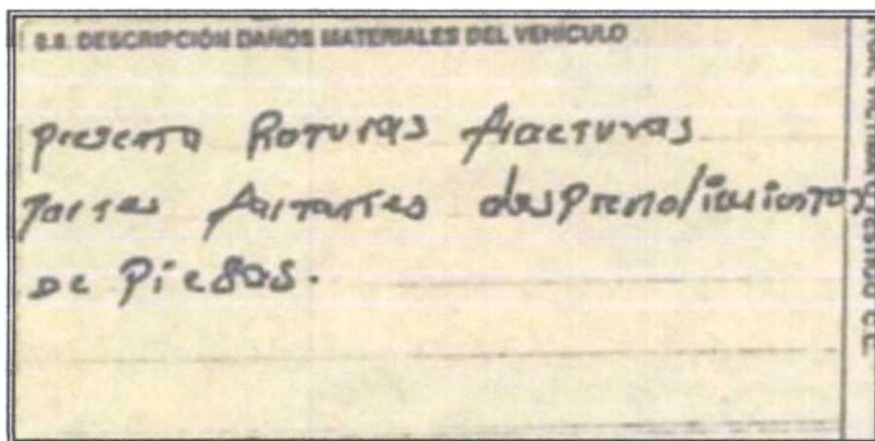 8.8. DESCRIPCIÓN DAÑOS MATERIALES DEL VEHÍCULO
presenta Roturas fracturas
partes faltantes desprendimientos
de piesas.
VICTIMA O TESTIGO